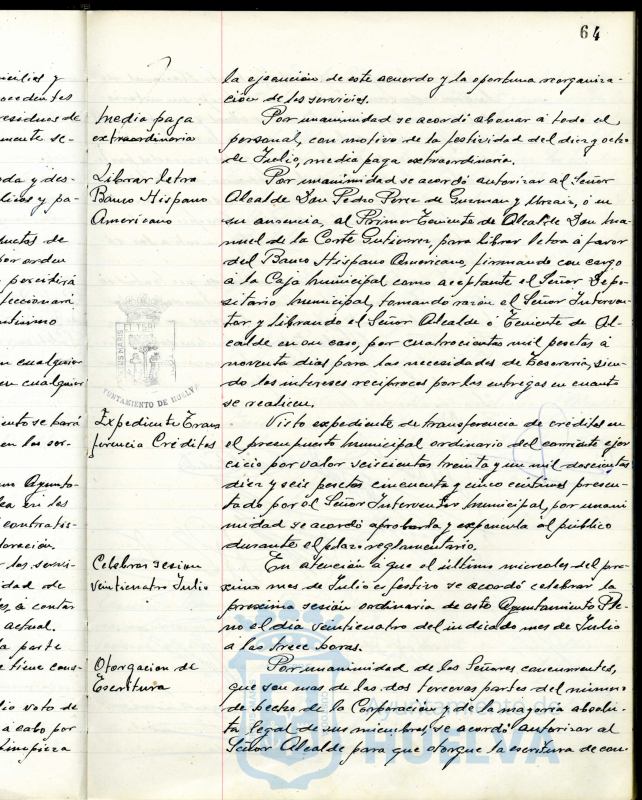 64
icilios y
ocedentes
residuos de
mente se-
oda y des-
licos y pa-
uctos de
por orden
percibirá
feccionará
ntísimo
n cualquier
en cualquier
iento se hará
en los ser-
un Ayunto-
lea en los
contratis-
loración.
los servi-
idad de
es, a contar
actual.
la parte
e tiene cons-
lio voto de
a cabo por
limpieza
Media paga
extraordinaria
Librar letra
Banco Hispano
Americano
Expediente Trans
ferencia Créditos
Celebrar sesion
veinticuatro Julio
Otorgacion de
Escritura
la ejecución de este acuerdo y la oportuna reorganiza-
ción de los servicios.
Por unanimidad se acordó abonar á todo el
personal, con motivo de la festividad del diez y ocho
de Julio, media paga extraordinaria.
Por unanimidad se acordó autorizar al Señor
Alcalde Don Pedro Perez de Guzman y Urzaiz, ó en
su ausencia, al Primer Teniente de Alcalde Don Ma-
nuel de la Corte Gutierrez, para librar letra á favor
del Banco Hispano Americano, firmando con cargo
á la Caja Municipal como aceptante el Señor Depo-
sitário Municipal, tomando razón el Señor Interven-
tor y librando el Señor Alcalde ó Teniente de Al-
calde en su caso, por cuatrocientas mil pesetas á
noventa dias para las necesidades de Tesoreria, sien-
do los intereses reciprocos por las entregas en cuanto
se realicen.
Visto expediente de transferencia de créditos en
el presupuesto Municipal ordinario del corriente ejer
cicio por valor seiscientas treinta y un mil doscientas
diez y seis pesetas cincuenta y cinco centimos presen-
tado por el Señor Interventor Municipal, por unani
midad se acordó aprobarla y exponerla al público
durante el plazo reglamentario.
En atención a que el último miercoles del pro-
ximo mes de Julio es festivo se acordó celebrar la
proxima sesión ordinaria de este Ayuntamiento Ple-
no el dia veinticuatro del indicado mes de Julio
a las trece horas.
Por unanimidad de los Señores concurrentes,
que son mas de las dos terceras partes del número
de hecho de la Corporación y de la mayoria absolu-
ta legal de sus miembros, se acordó autorizar al
Señor Alcalde para que otorgue la escritura de con-
AYUNTAMIENTO DE HUELVA
Ayuntamiento de
HUELVA